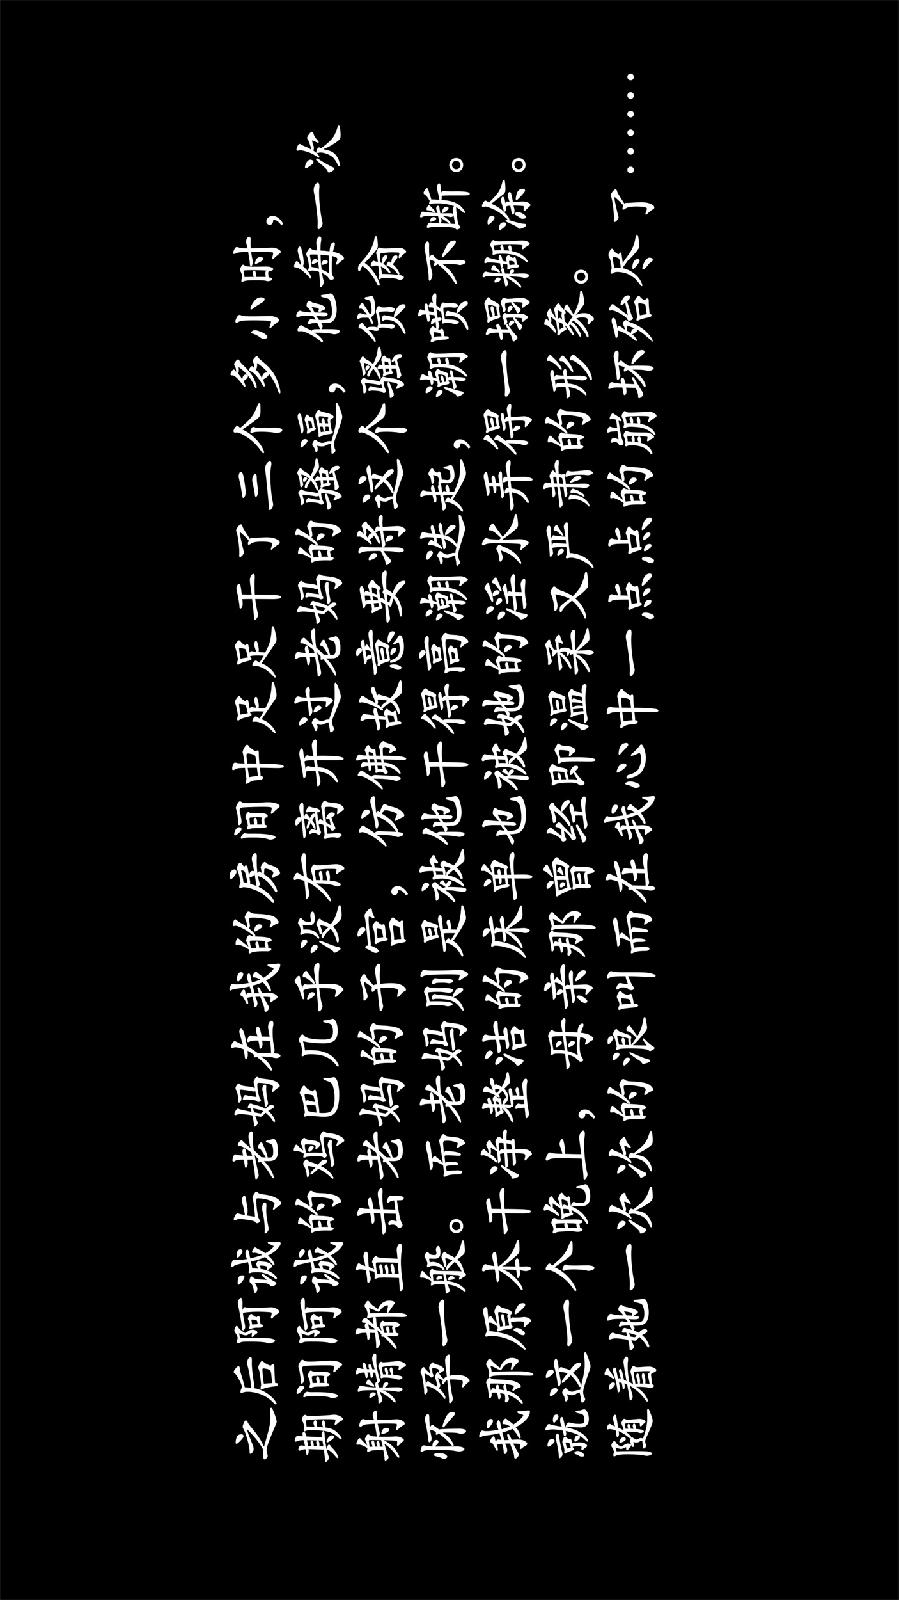 之后阿诚与老妈在我的房间中足足干了三个多小时，
期间阿诚的鸡巴几乎没有离开过老妈的骚逼，他每一次
射精都直击老妈的子宫，仿佛故意要将这个骚货肏
怀孕一般。而老妈则是被他干得高潮迭起，潮喷不断。
我那原本干净整洁的床单也被她的淫水弄得一塌糊涂。
就这一个晚上，母亲那曾经即温柔又严肃的形象。
随着她一次次的浪叫而在我心中一点点的崩坏殆尽了……